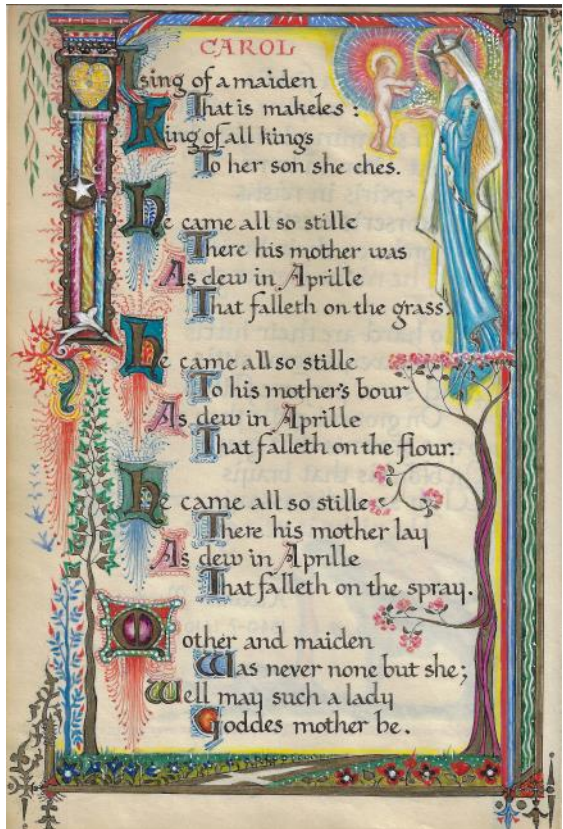 CAROL
I sing of a maiden
That is makeles:
King of all kings
To her son she ches.
He came all so stille
There his mother was
As dew in Aprille
That falleth on the grass.
He came all so stille
To his mother's bour
As dew in Aprille
That falleth on the flour.
He came all so stille
There his mother lay
As dew in Aprille
That falleth on the spray.
Mother and maiden
Was never none but she;
Well may such a lady
Goddes mother be.